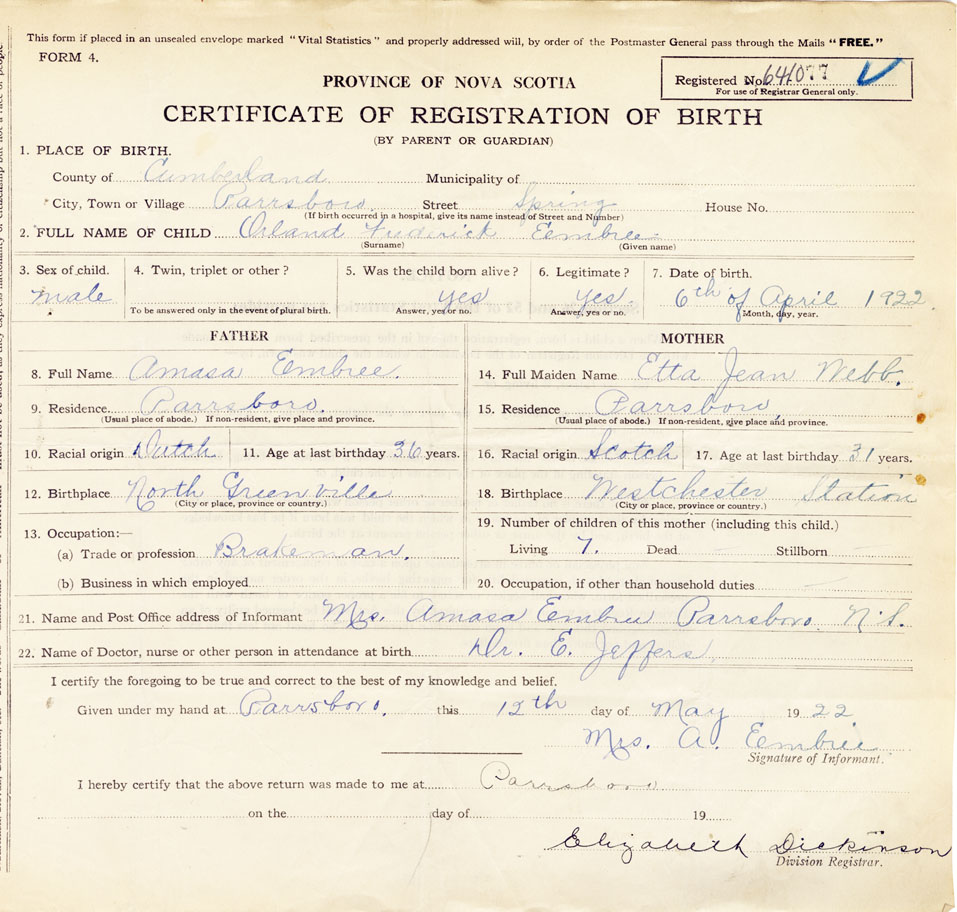 This form if placed in an unsealed envelope marked "Vital Statistics" and properly addressed will, by order of the Postmaster General pass through the Mails "FREE."
FORM 4.
PROVINCE OF NOVA SCOTIA
Registered No. 641077
For use of Registrar General only.
CERTIFICATE OF REGISTRATION OF BIRTH
(BY PARENT OR GUARDIAN)
1. PLACE OF BIRTH.
County of Cumberland Municipality of
City, Town or Village Parrsboro Street Spring House No.
(If birth occurred in a hospital, give its name instead of Street and Number)
2. FULL NAME OF CHILD Orland Frederick Eembree
(Surname) (Given name)
3. Sex of child. 4. Twin, triplet or other? 5. Was the child born alive? 6. Legitimate? 7. Date of birth.
male yes yes. 6th of April 1922
To be answered only in the event of plural birth. Answer, yes or no. Answer, yes or no. Month, day, year.
FATHER MOTHER
8. Full Name Amasa Eembree. 14. Full Maiden Name Etta Jean Webb.
9. Residence Parrsboro. 15. Residence Parrsboro
(Usual place of abode.) If non-resident, give place and province. (Usual place of abode.) If non-resident, give place and province.
10. Racial origin Dutch 11. Age at last birthday 36 years. 16. Racial origin Scotch 17. Age at last birthday 31 years.
12. Birthplace North Greenville 18. Birthplace Westchester Station
(City or place, province or country.) (City or place, province or country.)
13. Occupation:— 19. Number of children of this mother (including this child.)
(a) Trade or profession Brakeman. Living 7. Dead Stillborn
(b) Business in which employed 20. Occupation, if other than household duties
21. Name and Post Office address of Informant Mrs. Amasa Eembree Parrsboro. N.S.
22. Name of Doctor, nurse or other person in attendance at birth Dr. E. Jeffers
I certify the foregoing to be true and correct to the best of my knowledge and belief.
Given under my hand at Parrsboro. this 12th day of May 1922.
Mrs. A. Eembree
Signature of Informant.
I hereby certify that the above return was made to me at Parrsboro
on the day of 19
Elizabeth Dickinson
Division Registrar.